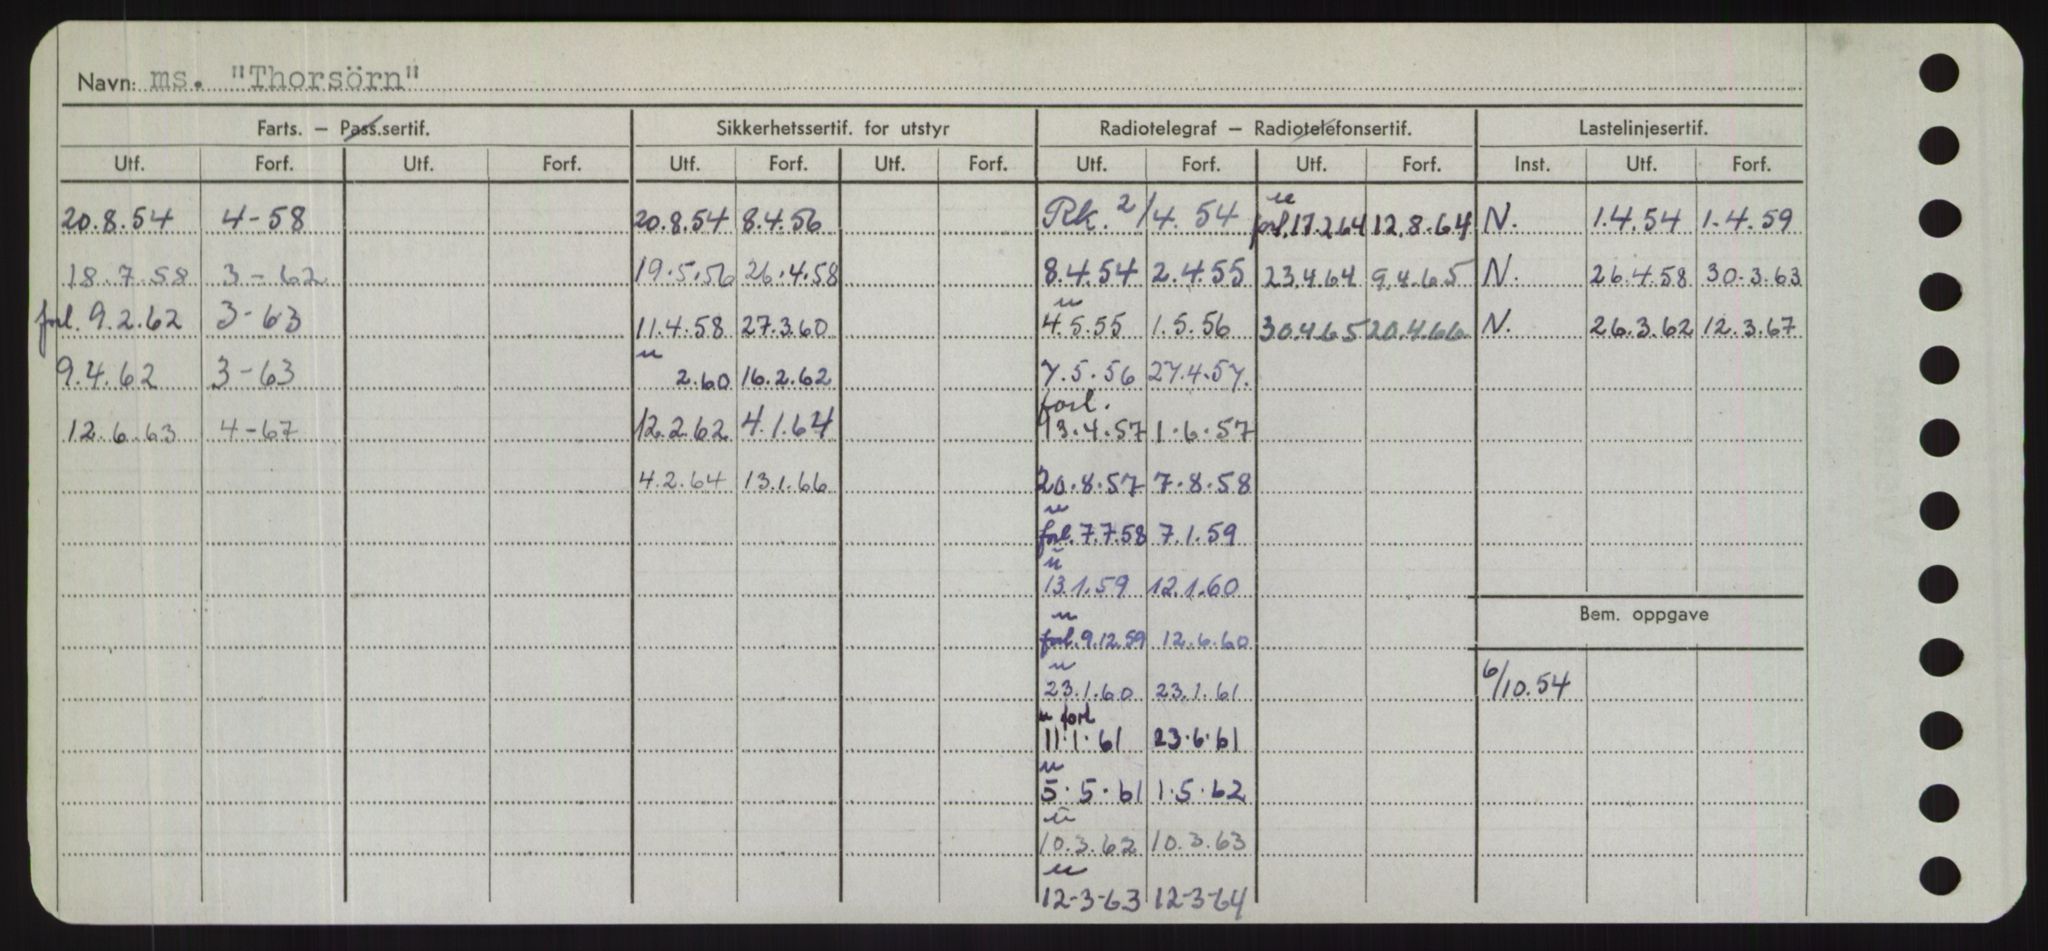 Navn: ms. "Thorsörn"
Farts. – Pass.sertif. Sikkerhetssertif. for utstyr Radiotelegraf – Radiotelefonsertif. Lastelinjesertif.
Utf. Forf. Utf. Forf. Utf. Forf. Utf. Forf. Utf. Forf. Utf. Forf. Inst. Utf. Forf.
u
20.8.54 4-58 20.8.54 8.4.56 Rk. 2/4. 54 forl.17.2.64 12.8.64 N. 1.4.54 1.4.59
18.7.58 3-62 19.5.56 26.4.58 8.4.54 2.4.55 23.4.64 9.4.65 N. 26.4.58 30.3.63
u
forl. 9.2.62 3-63 11.4.58 27.3.60 4.5.55 1.5.56 30.4.65 20.4.66 N. 26.3.62 12.3.67
u
9.4.62 3-63 2.60 16.2.62 7.5.56 27.4.57.
forl.
12.6.63 4-67 12.2.62 4.1.64 13.4.57 1.6.57
4.2.64 13.1.66 20.8.57 7.8.58
u
forl. 7.7.58 7.1.59
u
13.1.59 12.1.60
Bem. oppgave
u
forl. 9.12.59 12.6.60
u
23.1.60 23.1.61 6/10.54
u forl
11.1.61 23.6.61
u
5.5.61 1.5.62
u
10.3.62 10.3.63
u
12-3-63 12-3-64